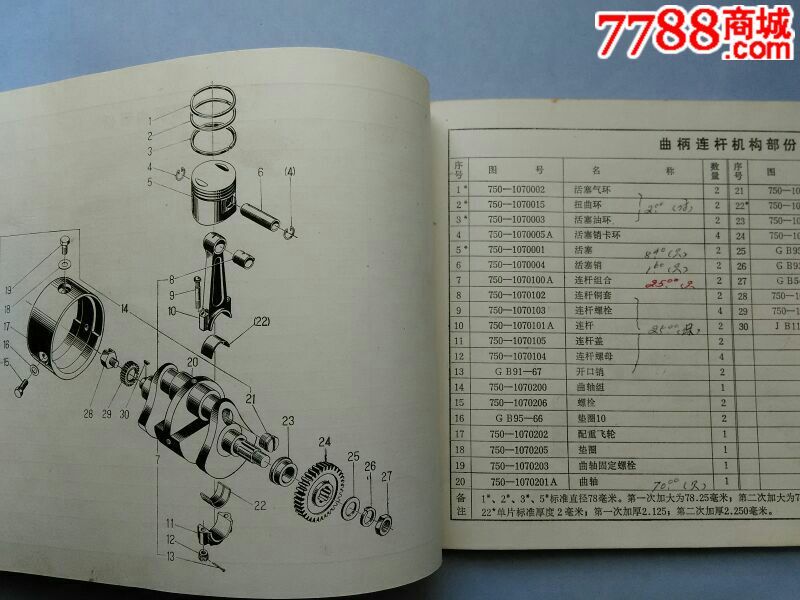 7788商城
.com
1
2
3
4
5
6
(4)
8
9
10
(22)
19
18
14
17
16
15
28
29
30
20
21
23
24
25
26
27
7
22
11
12
13
曲柄连杆机构部份
序号 图 号 名 称 数量 序号 图
1* 750—1070002 活塞气环 2 21 750—1
2* 750—1070015 扭曲环 2 22* 750—10
3* 750—1070003 活塞油环 2 23 750—10
4 750—1070005A 活塞销卡环 4 24 750—10
5* 750—1070001 活塞 2 25 GB95
6 750—1070004 活塞销 2 26 GB93
7 750—1070100A 连杆组合 25.00 2 27 GB5
8 750—1070102 连杆铜套 2 28 750—1
9 750—1070103 连杆螺栓 4 29 750—1
10 750—1070101A 连杆 2 30 JB11
11 750—1070105 连杆盖 2
12 750—1070104 连杆螺母 4
13 GB91—67 开口销 4
14 750—1070200 曲轴组 1
15 750—1070206 螺栓 2
16 GB95—66 垫圈10 2
17 750—1070202 配重飞轮 1
18 750—1070205 垫圈 1
19 750—1070203 曲轴固定螺栓 1
20 750—1070201A 曲轴 1
备注 1*、2*、3*、5*标准直径78毫米。第一次加大为78.25毫米；第二次加大为7
22*单片标准厚度2毫米；第一次加厚2.125；第二次加厚2.250毫米。